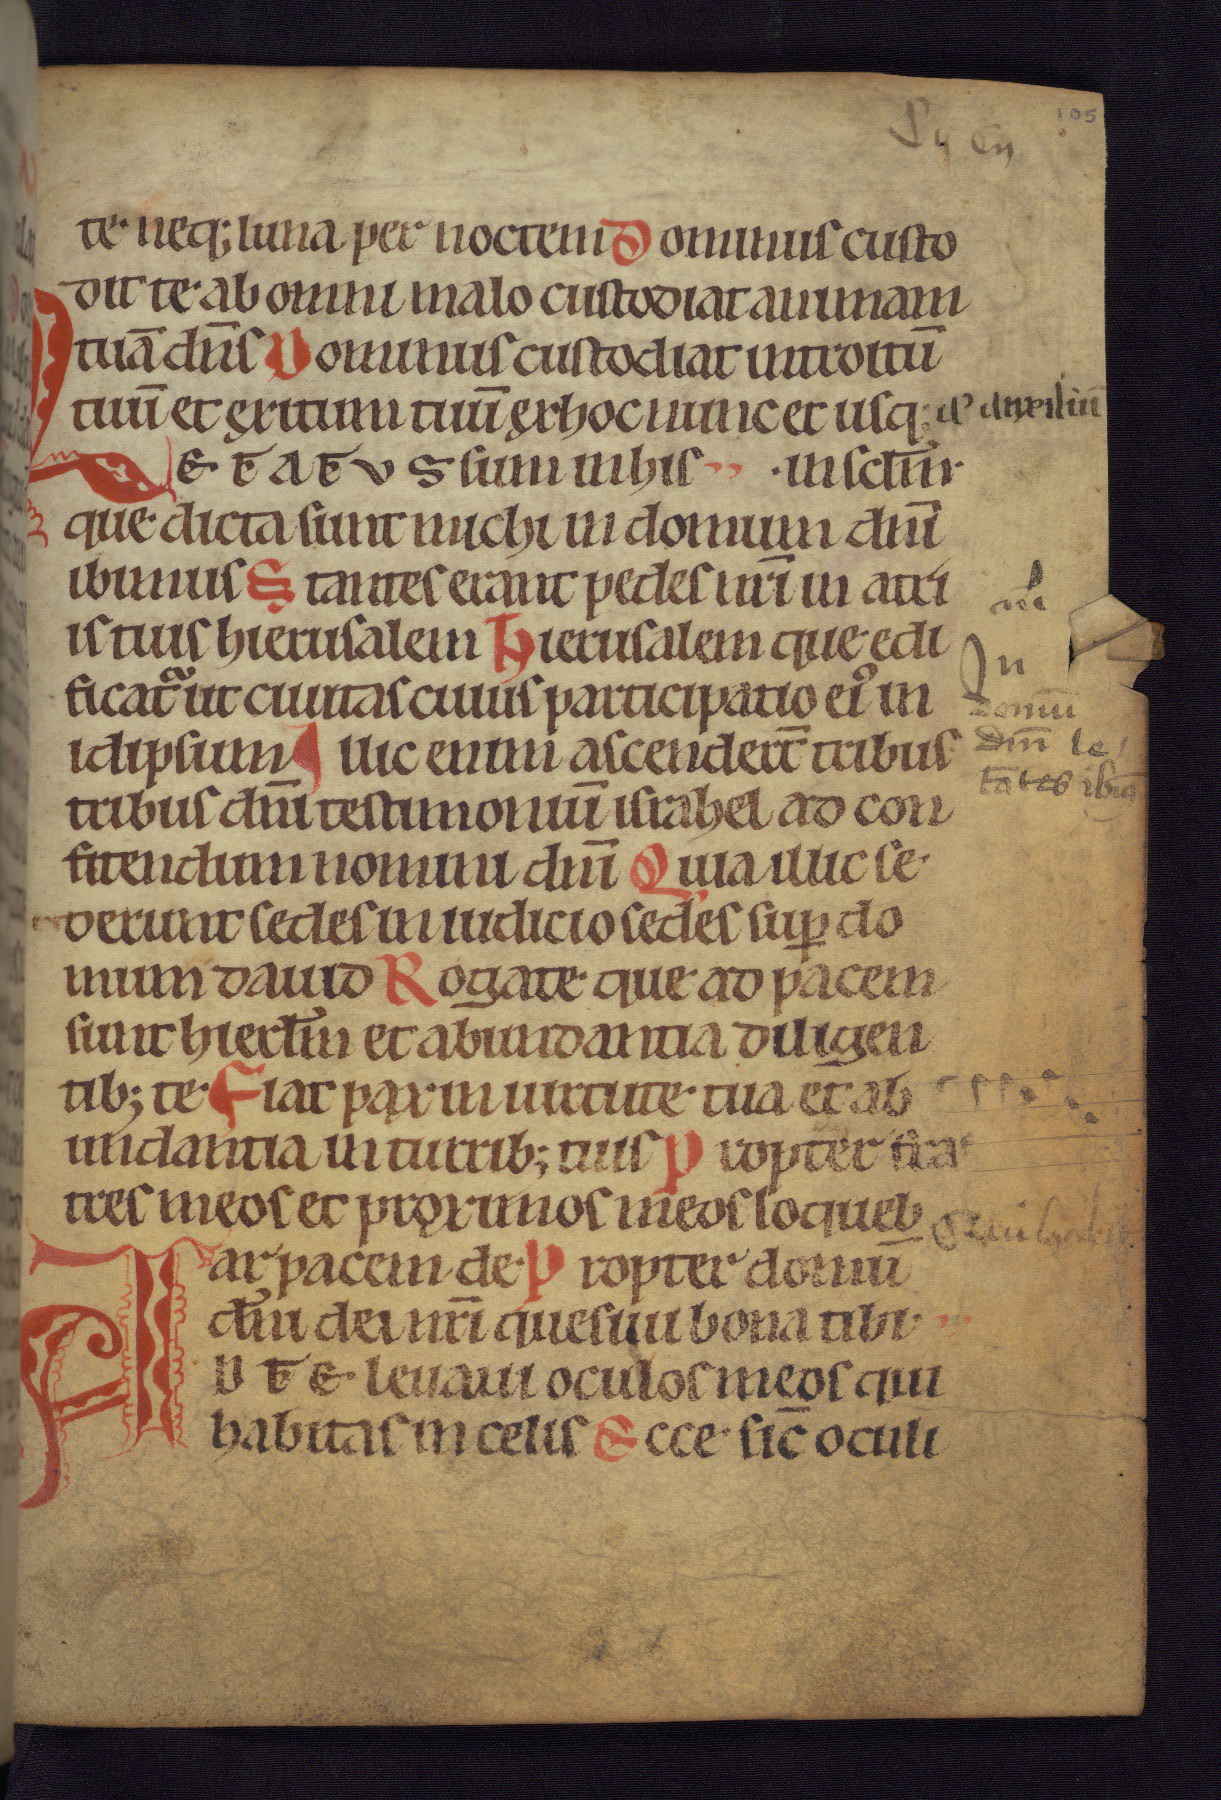 105
te neq; luna per noctem Dominus custo
dit te ab omni malo custodiat animam
tuā dn̄s Dominus custodiat introitū
tuū et exitum tuū ex hoc nunc et usq;
auxiliū
LETATUS sum in his in sclm̄
que dicta sunt michi in domum dn̄i
ibimus Stantes erant pedes nr̄i in atri
is tuis hierusalem Hierusalem que edi
ficat᷑ ut ciuitas cuius participatio eiꝰ in
In
idipsum Illuc enim ascender̄t tribus
domū
tribus dn̄i testimoniū israhel ad con
dn̄i le
fitendum nomini dn̄i Quia illic se
tātes ibi
derunt sedes in iudicio sedes suꝑ do
mum dauid Rogate que ad pacem
sunt hierl̄m et abundantia diligen
tib; te Fiat pax in uirtute tua et ab
undantia in turrib; tuis Propter fra
tres meos et proximos meos loqueb
Qui habit
ar pacem de Propter domū
dn̄i dei nr̄i quesiui bona tibi
AD TE leuaui oculos meos qui
habitas in celis Ecce sic̄ oculi